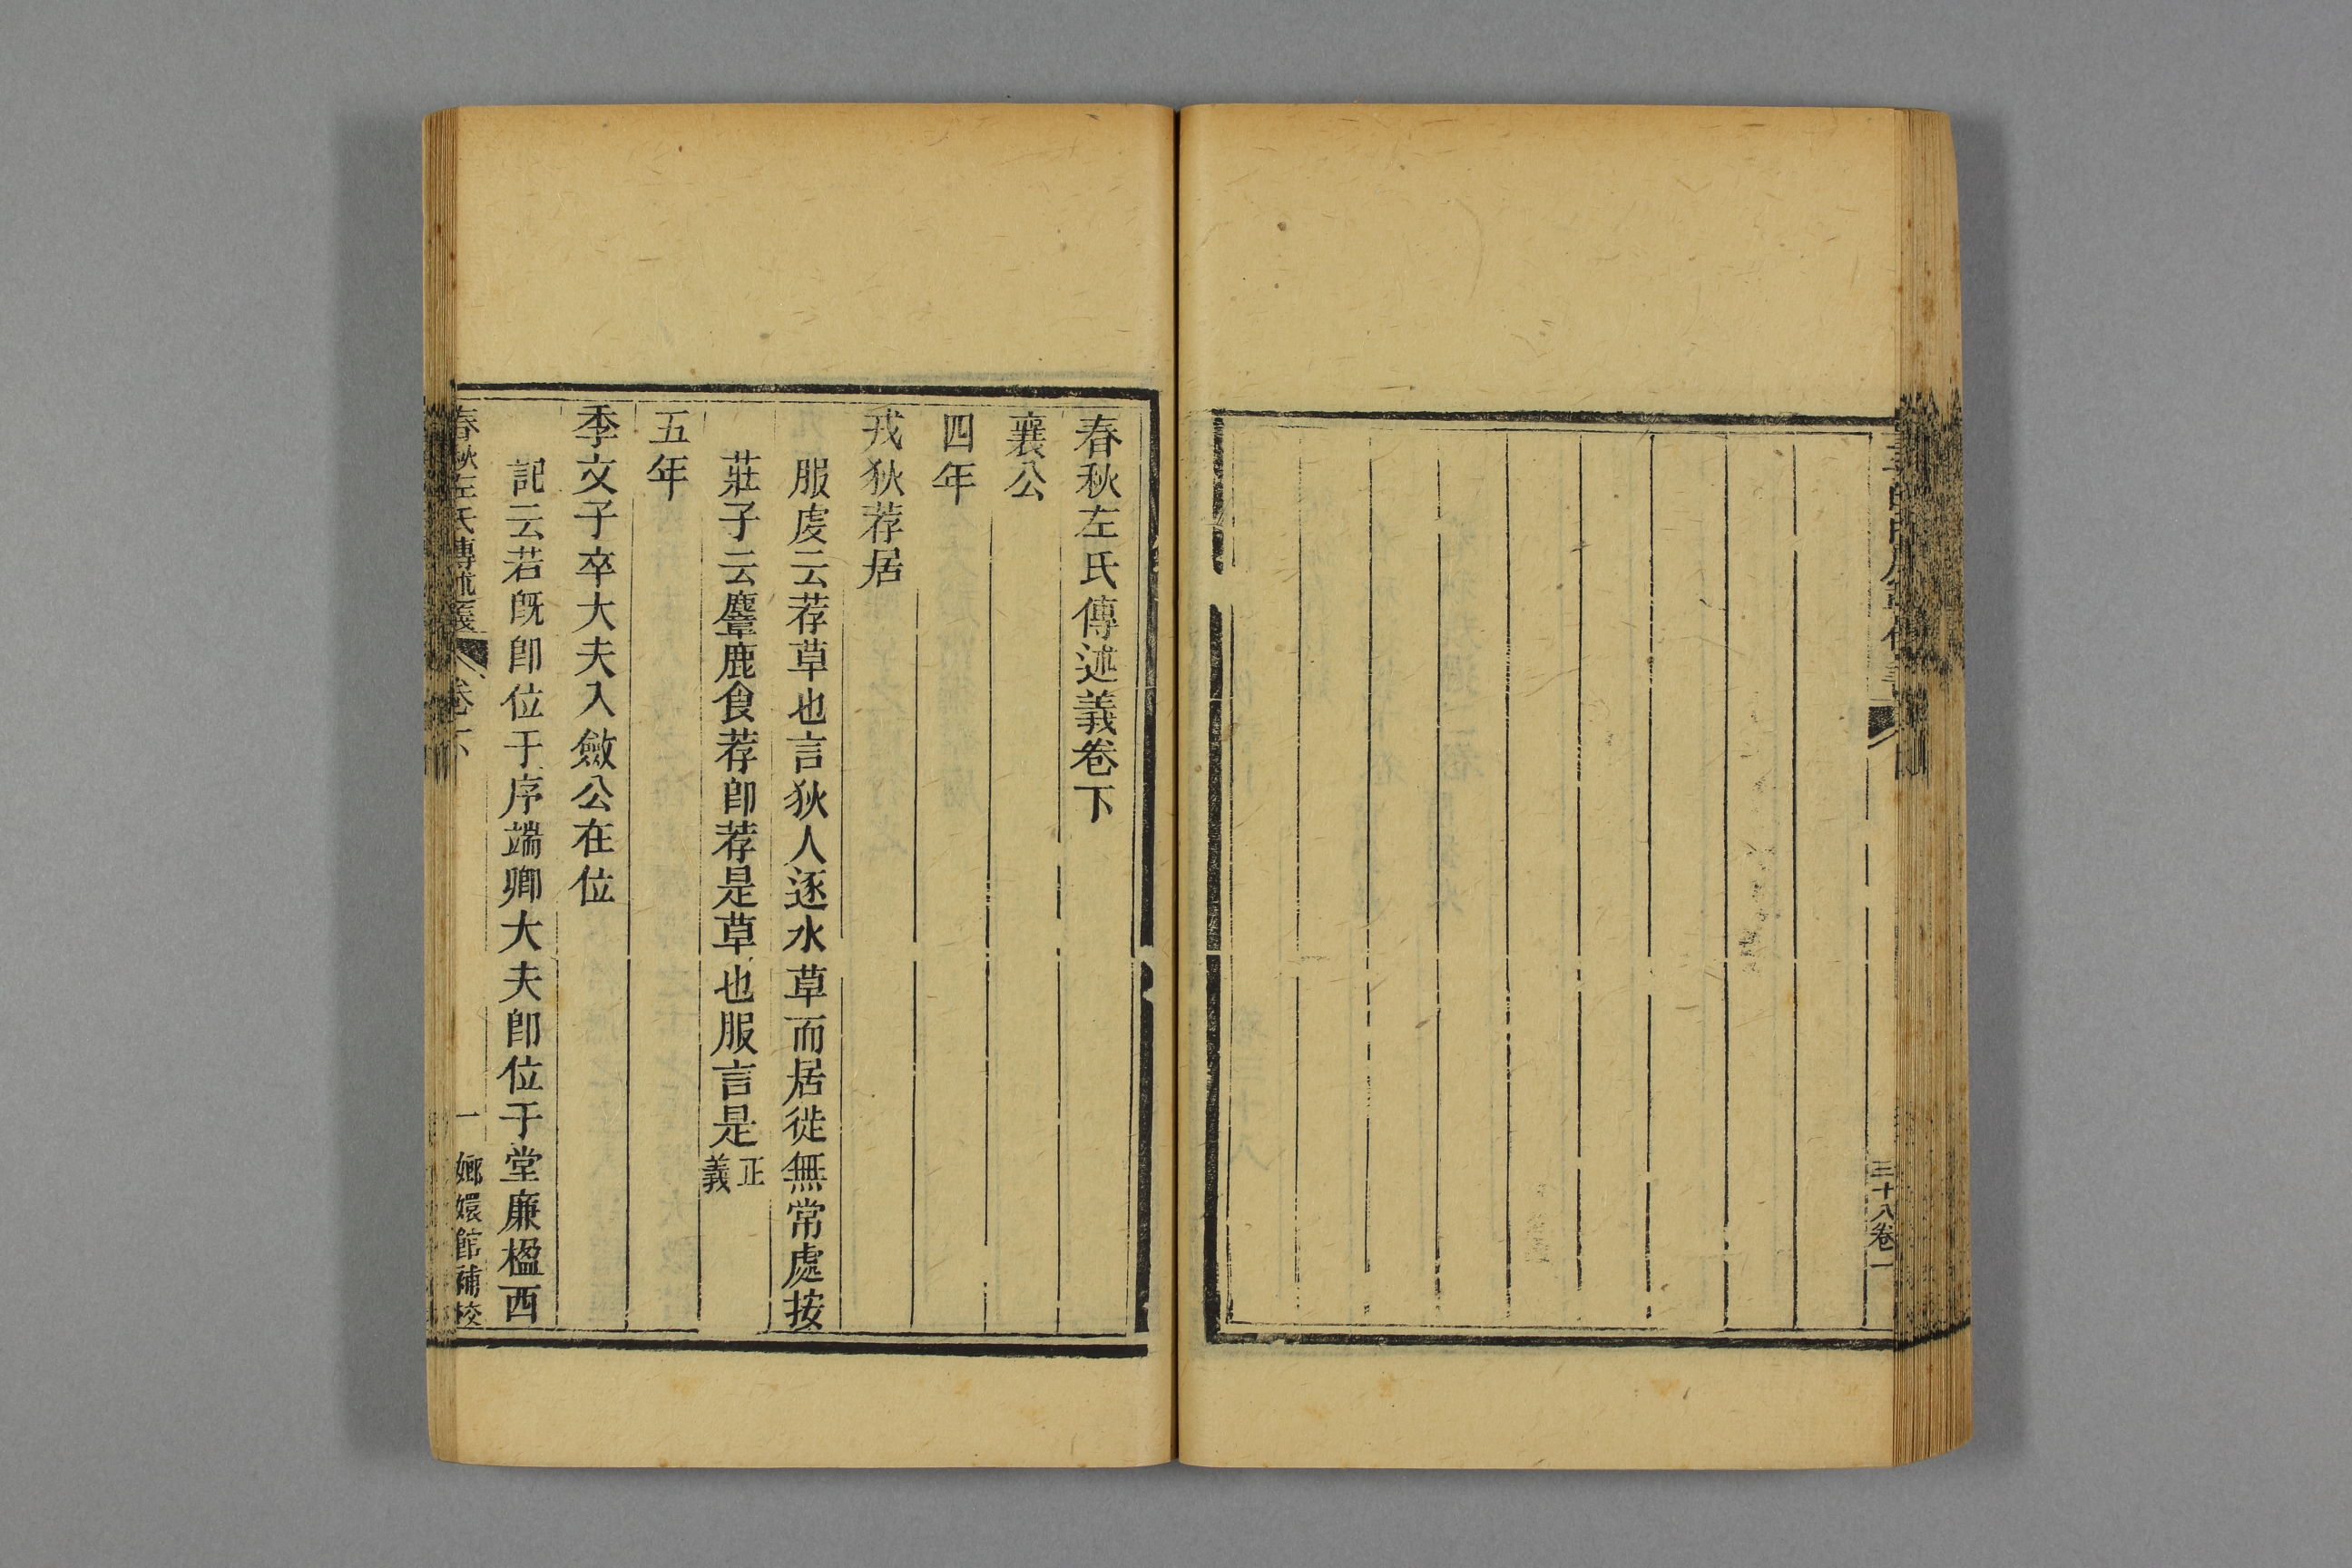 三十八卷一
春秋左氏傳述義卷下
襄公
四年
戎狄荐居
服虔云荐草也言狄人逐水草而居徙無常處按
莊子云麞鹿食荐卽荐是草也服言是正義
五年
季文子卒大夫入斂公在位
記云若旣卽位于序端卿大夫卽位于堂廉楹西
春秋左氏傳述義
卷下
一
嫏嬛館補校